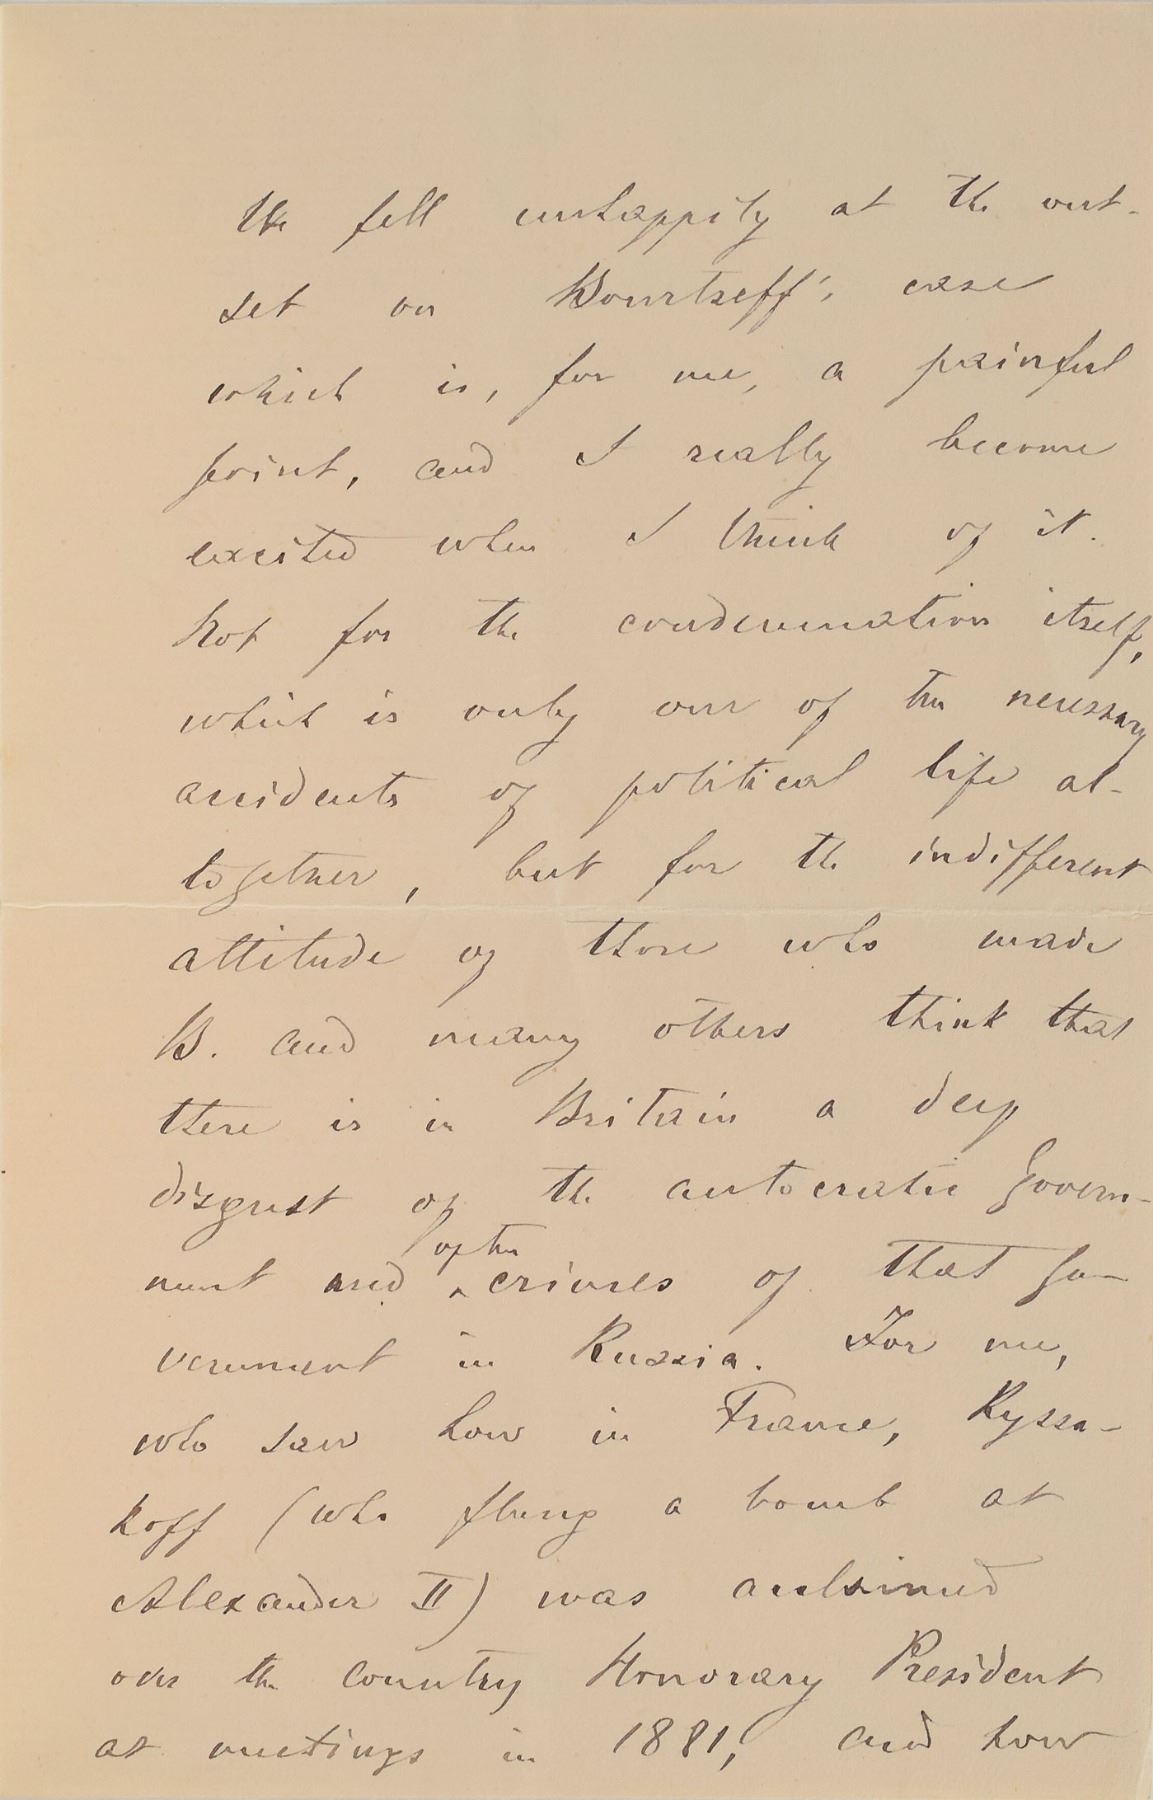 We fell unhappily at the out-
set on Bourtzeff's case
which is, for me, a painful
point, and I really become
excited when I think of it.
Not for the condemnation itself,
which is only one of the necessary
accidents of political life al-
together, but for the indifferent
attitude of those who made
B. and many others think that
there is in Britain a deep
disgust of the autocratic Govern-
ment and of the crimes of that Go-
vernment in Russia. For me,
who saw how in France, Ryssa-
koff (who flung a bomb at
Alexander II) was acclaimed
over the country Honorary President
at meetings in 1881, and how